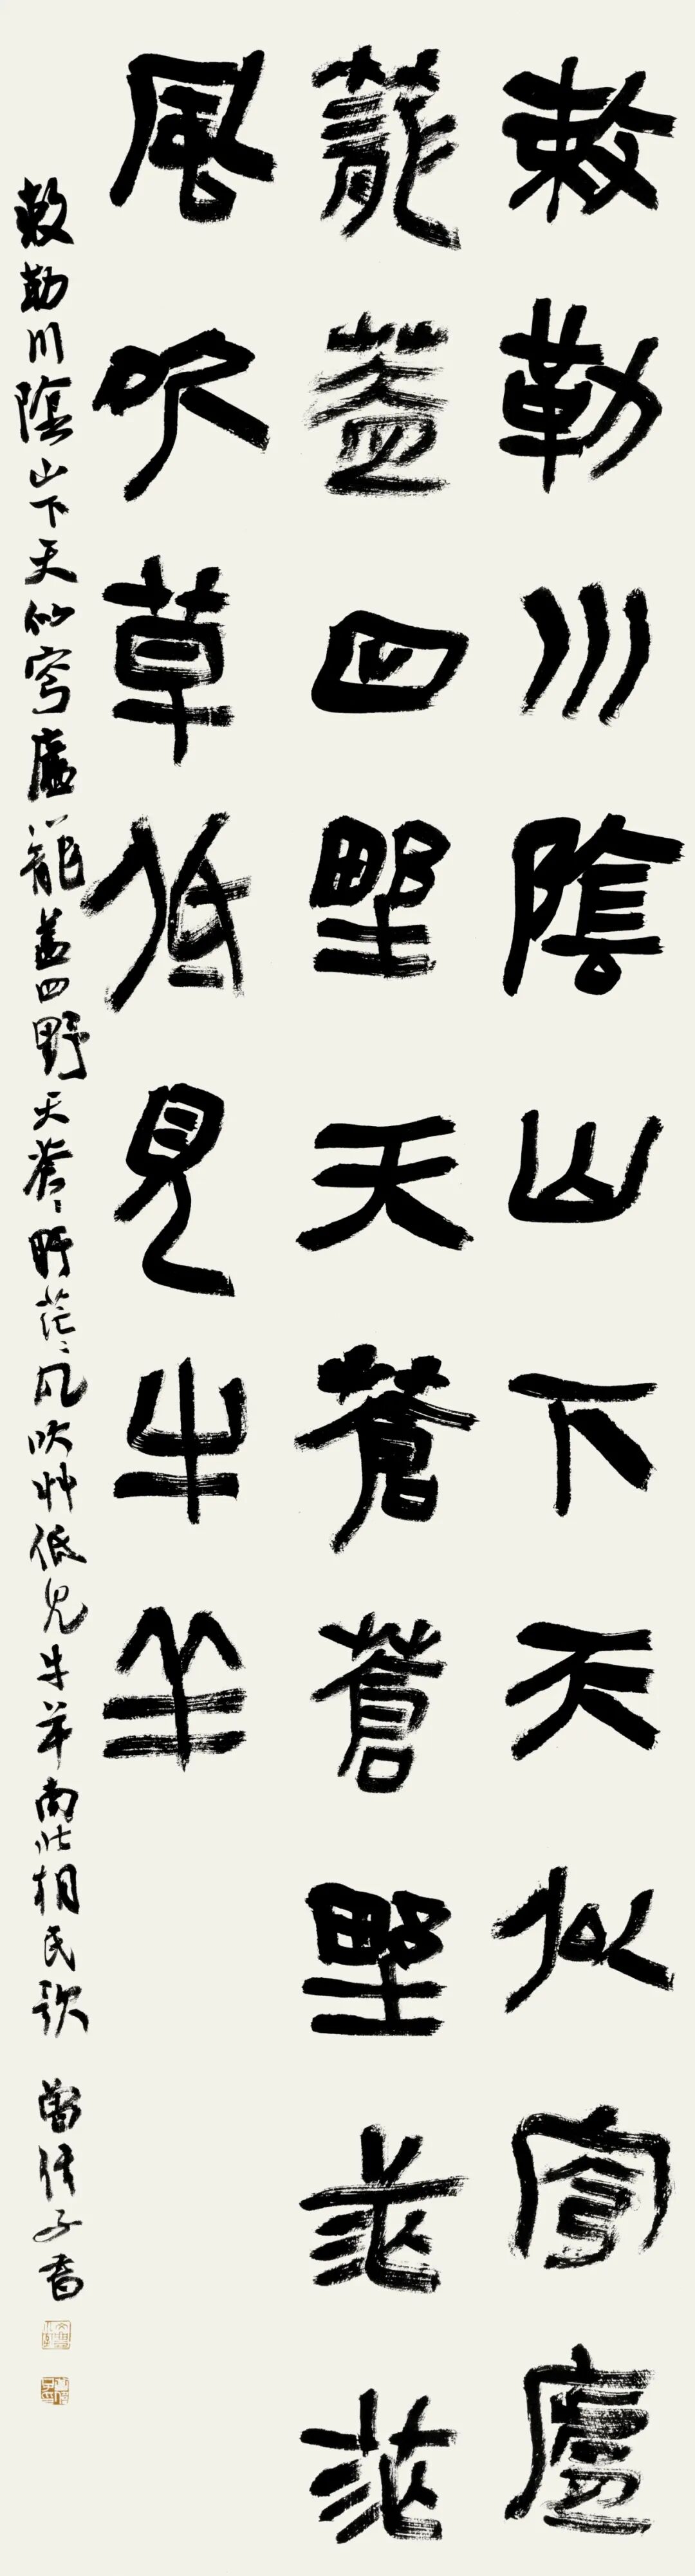 敕勒川陰山下天似穹廬
蘢蓋四野天蒼蒼野茫茫
風吹草低見牛羊
敕勒川陰山下天似穹廬籠蓋四野天蒼〻野茫〻風吹艸低見牛羊南北朝民歌 曾 子